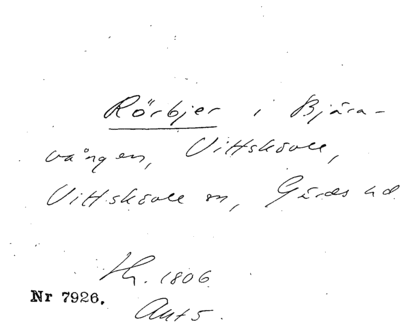 Rörbjer i Bjära-
vången, Vittskövle,
Vittskövle sn, Gärds hd
1806
Nr 7926.